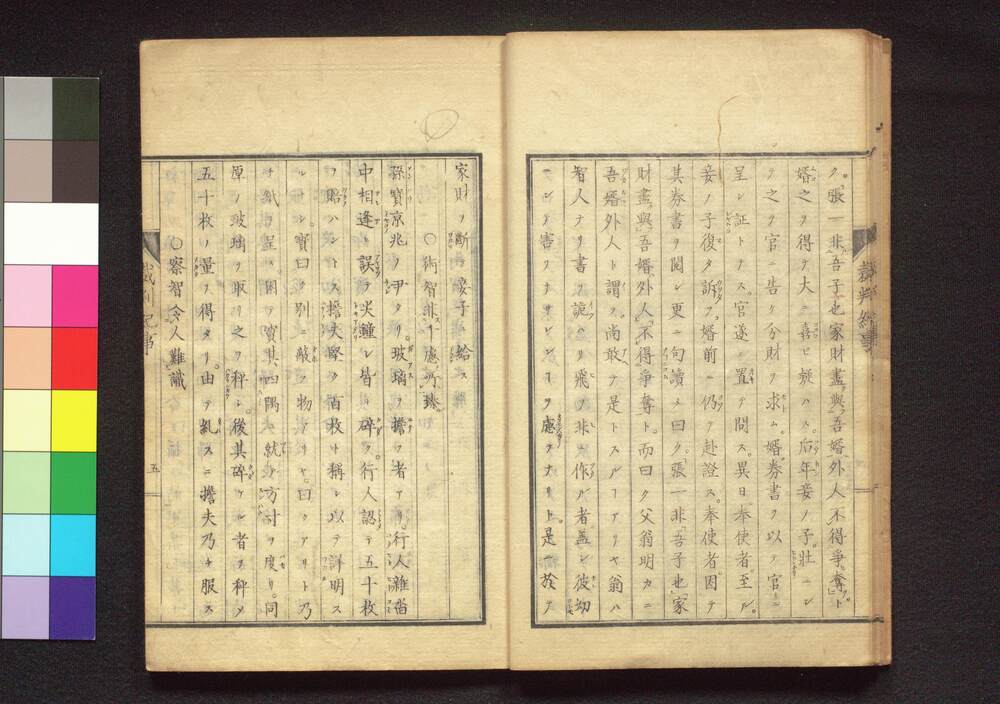 ク。張一非吾子也家財盡與吾婿外人不得爭奪ト
婿之ヲ得テ大ニ喜ビ娯ハス。后年妾ノ子壯ニシ
テ之ヲ官ニ告ケ分財ヲ求ム。婿券書ヲ以テ官ニ
呈シ証トナス。官遂ニ置テ問ス。異日奉使者至ル。
妾ノ子復タ訴フ。婿前ニ仍テ赴證ス。奉使者因テ
其券書ヲ閲シ更ニ句讀メ曰ク。張一非吾子也家
財盡與。吾婿外人。不得爭奪ト。而曰ク父翁明カニ
吾婿外人ト謂フ。尚敢テ是トスルアリヤ翁ハ
智人ナリ書ヲ詭ハリ飛ヲ非ニ作ル者蓋シ彼幼
ニシテ害ヲナサレンヿヲ慮ヲナリト。是ニ於テ
家財ヲ斷シ妾子ニ給ス
○術智非十慮乃臻
孫寶京兆ノ尹タリ。玻璃ヲ擔フ者アリ行人雜沓
中相逢ヒ誤テ火鐘シ皆ナ碎ク。行人認テ五十枚
ヲ賠ハントス擔夫堅ク百枚ト稱シ以テ詳明ス
ル毋シ。寶曰ク別ニ敵フ物アリヤ。曰クアリト乃
原ノ玻璃ヲ取リ之ヲ秤ル。後其碎ケシ者ヲ秤メ
五十枚ノ量ヲ得タリ。由テ糺スニ擔夫乃チ服ス
○察智令人難識
裁判紀事
五